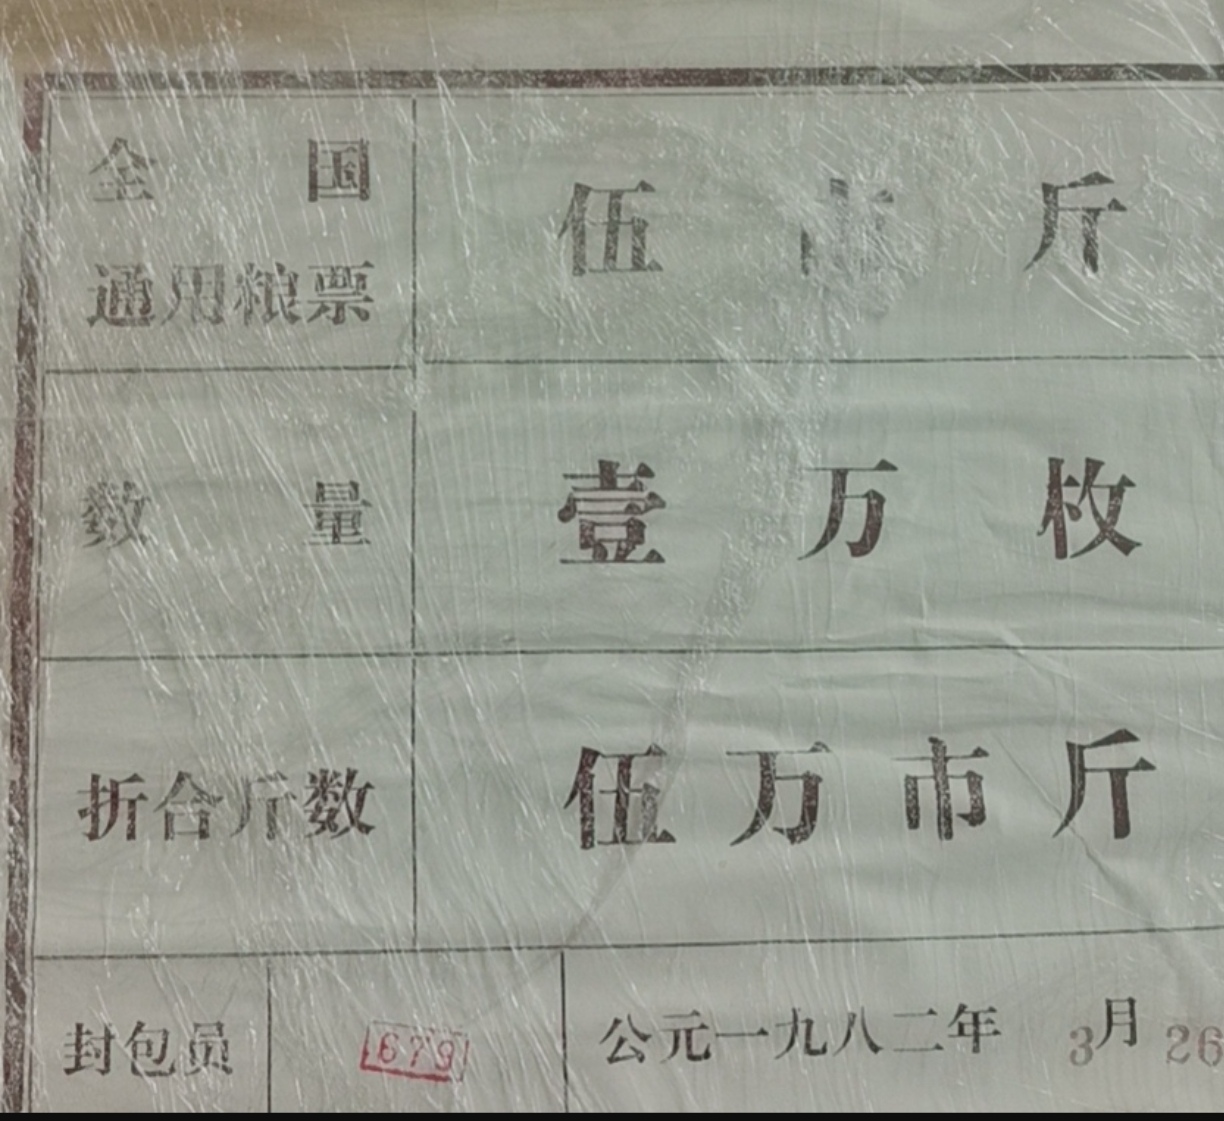 全国 伍市斤
通用粮票
数量 壹万枚
折合斤数 伍万市斤
封包员 679 公元一九八二年 3月 26